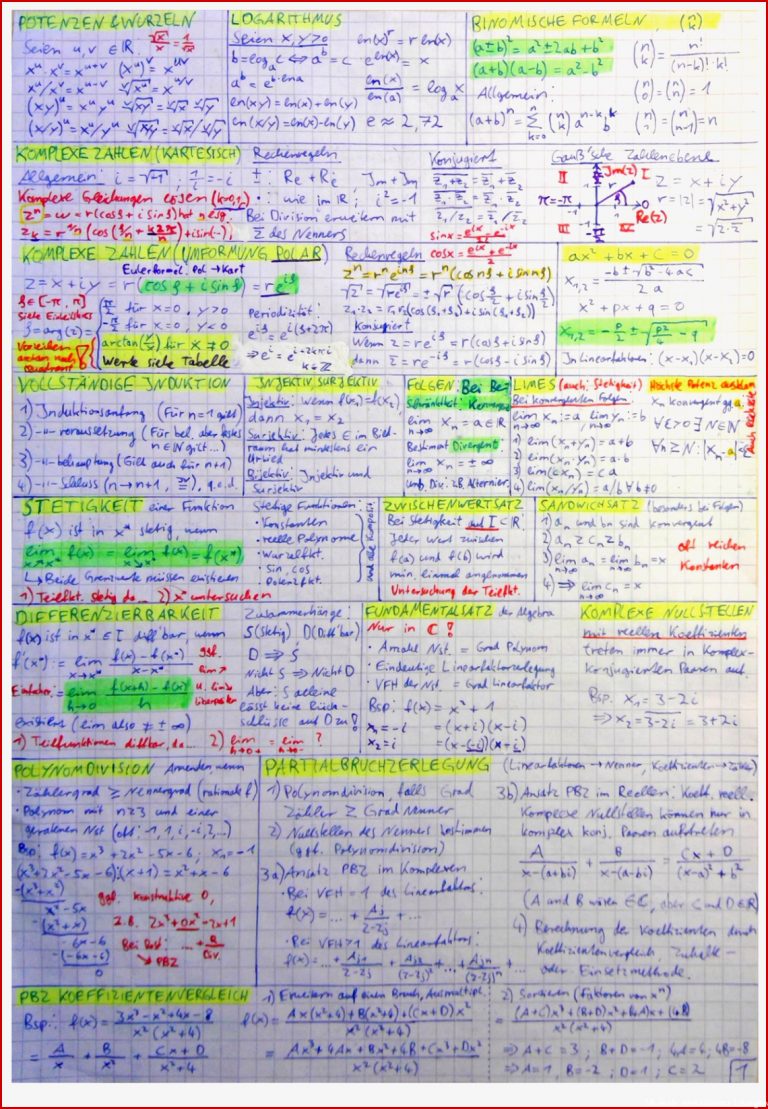 POTENZEN & WURZELN
Seien u, v ∈ ℝ. √x/x = 1/√x
x^u · x^v = x^(u+v) (x^u)^v = x^(uv)
x^u/x^v = x^(u-v) ᵛ√x^u = x^(u/v)
(xy)^u = x^u y^u
(x/y)^u = x^u/y^u
LOGARITHMUS
Seien x, y > 0 ln(x)^r = r ln(x)
b = log_a c ⇔ a^b = c e^(ln(x)) = x
a^b = e^(b·ln a) ln(x)/ln(a) = log_a x
ln(xy) = ln(x) + ln(y)
ln(x/y) = ln(x) - ln(y) e ≈ 2,72
BINOMISCHE FORMELN, (n k)
(a±b)² = a² ± 2ab + b² (n k) = n!/((n-k)!·k!)
(a+b)(a-b) = a² - b²
Allgemein: (n 0) = (n n) = 1
(a+b)^n = Σ_{k=0}^n (n k) a^(n-k) b^k (n 1) = (n n-1) = n
KOMPLEXE ZAHLEN (KARTESISCH) Rechenregeln
Allgemein: i = √-1, 1/i = -i ± : Re + Re Im + Im
Komplexe Gleichungen lösen
· : wie im ℝ; i² = -1
z^n = w = r(cosφ + i sinφ) hat n Lsg.
Bei Division erweitern mit
z̄ des Nenners
Konjugiert
sin x =
cos x =
Gauß'sche Zahlenebene
II Im(z) I
z = x + iy
r = |z| = √(x²+y²)
Re(z)
III IV = √(z·z̄)
KOMPLEXE ZAHLEN (UMFORMUNG POLAR)
Eulerformel: Pol → Kart
z = x + iy = r(cosφ + i sinφ) = r e^(iφ)
φ ∈ [-π, π]
siehe Einheitskreis
φ = arg(z) =
π/2 für x=0, y>0
-π/2 für x=0, y<0
arctan(y/x) für x ≠ 0
Werte siehe Tabelle
Vorzeichen
arctan nach
Quadrant!
Periodizität:
e^(iφ) = e^(i(φ+2π))
k ∈ ℤ
Rechenregeln
z^n = r^n e^(inφ) = r^n (cos nφ + i sin nφ)
√z = √(re^(iφ)) = ±√r (cos φ/2 + i sin φ/2)
z₁·z₂ = r₁r₂(cos(φ₁+φ₂) + i sin(φ₁+φ₂))
Konjugiert
Wenn z = re^(iφ) = r(cosφ + i sinφ)
dann z̄ = re^(-iφ) = r(cosφ - i sinφ)
ax² + bx + c = 0
x₁,₂ = (-b ± √(b²-4ac))/2a
x² + px + q = 0
x₁,₂ = -p/2 ± √(p²/4 - q)
In Linearfaktoren: (x-x₁)(x-x₂)=0
VOLLSTÄNDIGE INDUKTION
1) Induktionsanfang (Für n=1 gilt)
2) -"- voraussetzung (Für bel. aber festes
n ∈ ℕ gilt...)
3) -"- behauptung (Gilt auch für n+1)
4) -"- Schluss (n → n+1, q.e.d.
INJEKTIV, SURJEKTIV
Injektiv: Wenn f(x₁) = f(x₂),
dann x₁ = x₂
Surjektiv: Jedes ∈ im Bild-
raum hat mindestens ein
Urbild
Bijektiv: Injektiv und
Surjektiv
FOLGEN: Bei Be-
schränktheit: Konvergent
lim_{n→∞} x_n = a ∈ ℝ
Bestimmt Divergent:
lim_{n→∞} x_n = ±∞
Unb. Div.: zB Alternier.
LIMES (auch: Stetigkeit) Höchste Potenz ausklam.
Bei konvergenten Folgen:
lim_{n→∞} x_n := a, lim y_n := b
1) lim(x_n + y_n) = a + b
2) lim(x_n · y_n) = a · b
3) lim(cx_n) = ca
4) lim(x_n/y_n) = a/b ∀ b≠0
x_n konvergent gg. a,
∀ε>0 ∃ N ∈ ℕ
∀n ≥ N: |x_n - a| < ε
STETIGKEIT einer Funktion
f(x) ist in x* stetig, wenn
lim_{x↗x*} f(x) = lim_{x↘x*} f(x) = f(x*)
↳ Beide Grenzwerte müssen existieren
1) Teilfkt. stetig da... 2) x* untersuchen
Stetige Funktionen:
· Konstanten
· reelle Polynome
· Wurzelfkt.
· sin, cos
· Potenzfkt.
ZWISCHENWERTSATZ
Bei Stetigkeit auf I ⊂ ℝ:
Jeder Wert zwischen
f(a) und f(b) wird
min. einmal angenommen
Untersuchung der Teilfkt.
SANDWICHSATZ (besonders bei Folgen)
1) a_n und b_n sind konvergent
2) a_n ≥ c_n ≥ b_n
3) lim_{n→∞} a_n = lim_{n→∞} b_n = x
4) ⇒ lim_{n→∞} c_n = x
oft reichen
Konstanten
DIFFERENZIERBARKEIT
f(x) ist in x* ∈ I diff'bar, wenn
f'(x*) := lim_{x→x*} (f(x) - f(x*))/(x - x*)
Einfacher: = lim_{h→0} (f(x+h) - f(x))/h
existiert (lim also ≠ ±∞)
1) Teilfunktionen diffbar, da... 2) lim_{h→0+} = lim_{h→0-} ?
Zusammenhänge:
S(stetig) D(Diff'bar)
D ⇒ S
Nicht S ⇒ Nicht D
Aber: S alleine
lässt keine Rück-
schlüsse auf D zu!
FUNDAMENTALSATZ der Algebra
Nur in ℂ!
· Anzahl Nst. = Grad Polynom
· Eindeutige Linearfaktorzerlegung
· VFH der Nst. = Grad Linearfaktor
Bsp: f(x) = x² + 1
x₁ = -i = (x+i)(x-i)
x₂ = i = (x-(-i))(x+i)
KOMPLEXE NULLSTELLEN
mit reellen Koeffizienten
treten immer in Komplex-
konjugierten Paaren auf.
Bsp. x₁ = 3-2i
⇒ x₂ = 3-2i = 3+2i
POLYNOMDIVISION Anwenden, wenn
· Zählergrad ≥ Nennergrad (rationale f)
· Polynom mit n≥3 und einer
geratenen Nst (oft: -1, 1, i, -i, 2, ...)
Bsp: f(x) = x³ + 2x² - 5x - 6; x₁ = -1
(x³+2x²-5x-6):(x+1) = x²+x-6
-(x³+x²)
x² - 5x
-(x²+x)
-6x-6
-(-6x-6)
0
ggf. konstruktive 0,
z.B. 2x³+0x²-2x+1
Bei Rest: ... + R/Div.
↘ PBZ
PARTIALBRUCHZERLEGUNG (Linearfaktoren → Nenner, Koeffizienten → Zähler)
1) Polynomdivision, falls Grad
Zähler ≥ Grad Nenner
2) Nullstellen des Nenners bestimmen
(ggf. Polynomdivision)
3a) Ansatz PBZ im Komplexen
· Bei VFH = 1 des Linearfaktors:
f(x) = ... + A_j/(z-z_j) + ...
· Bei VFH > 1 des Linearfaktors:
f(x) = ... + A_j1/(z-z_j) + A_j2/(z-z_j)² + ... + A_jn/(z-z_j)^n + ...
3b) Ansatz PBZ im Reellen: Koeff. reell.
Komplexe Nullstellen können nur in
komplex konj. Paaren auftreten
A/(x-(a+bi)) + B/(x-(a-bi)) = (Cx+D)/((x-a)²+b²)
(A und B wären ∈ ℂ, aber C und D ∈ ℝ)
4) Berechnung der Koeffizienten durch
Koeffizientenvergleich, Zuhalte-
oder Einsetzmethode.
PBZ KOEFFIZIENTENVERGLEICH
Bsp.: f(x) = (3x³-x²+4x-8)/(x²(x²+4))
= A/x + B/x² + (Cx+D)/(x²+4)
1) Erweitern auf einen Bruch, Ausmultipl.
f(x) = (Ax(x²+4)+B(x²+4)+(Cx+D)x²)/(x²(x²+4))
= (Ax³+4Ax+Bx²+4B+Cx³+Dx²)/(x²(x²+4))
2) Sortieren (Faktoren von x^n)
= ((A+C)x³+(B+D)x²+(4A)x+(4B))/(x²(x²+4))
⇒ A+C = 3; B+D = -1; 4A = 4; 4B = -8
⇒ A = 1, B = -2; D = 1; C = 2
1